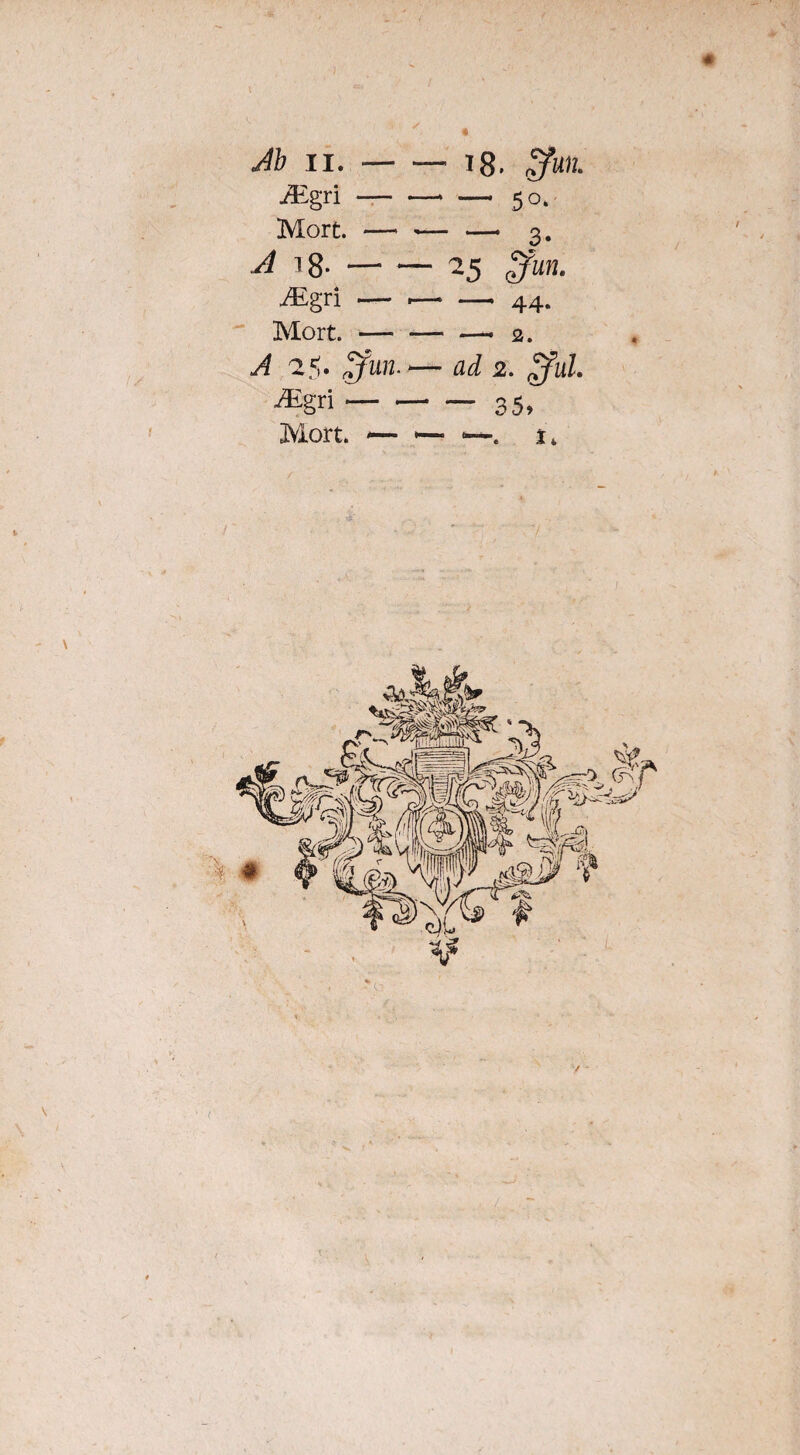 Ab 11. — — 18. Jun.
Ægri — — — 50.
Mort. — — — 3.
A 18. — — 25 Jun.
Ægri — — — 44.
Mort. — — — 2.
A 25. Jun. — ad 2. Jul.
Ægri — — — 35,
Mort. — — —. 1.